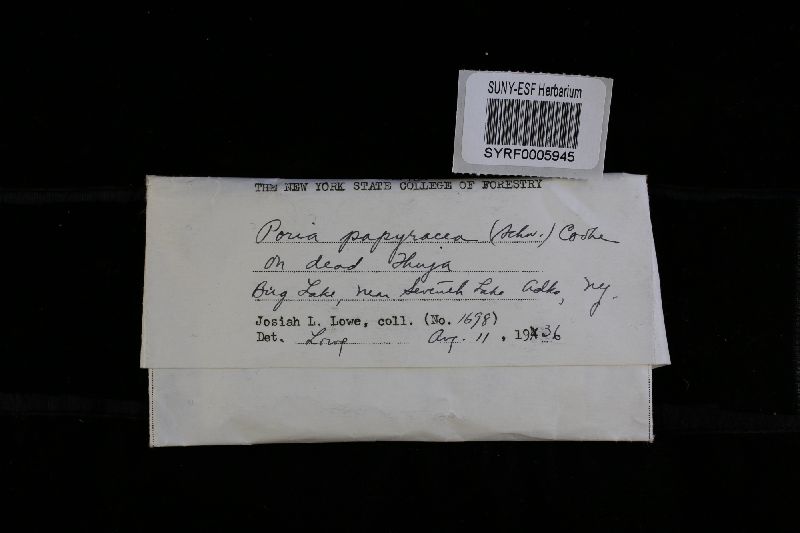 SUNY-ESF Herbarium
SYRF0005945
THE NEW YORK STATE COLLEGE OF FORESTRY
Poria papyracea (Schw.) Cooke
On dead Thuja
Bug Lake, near Seventh Lake Adks, N.Y.
Josiah L. Lowe, coll. (No. 1698)
Det. Lowe Aug. 11, 1936